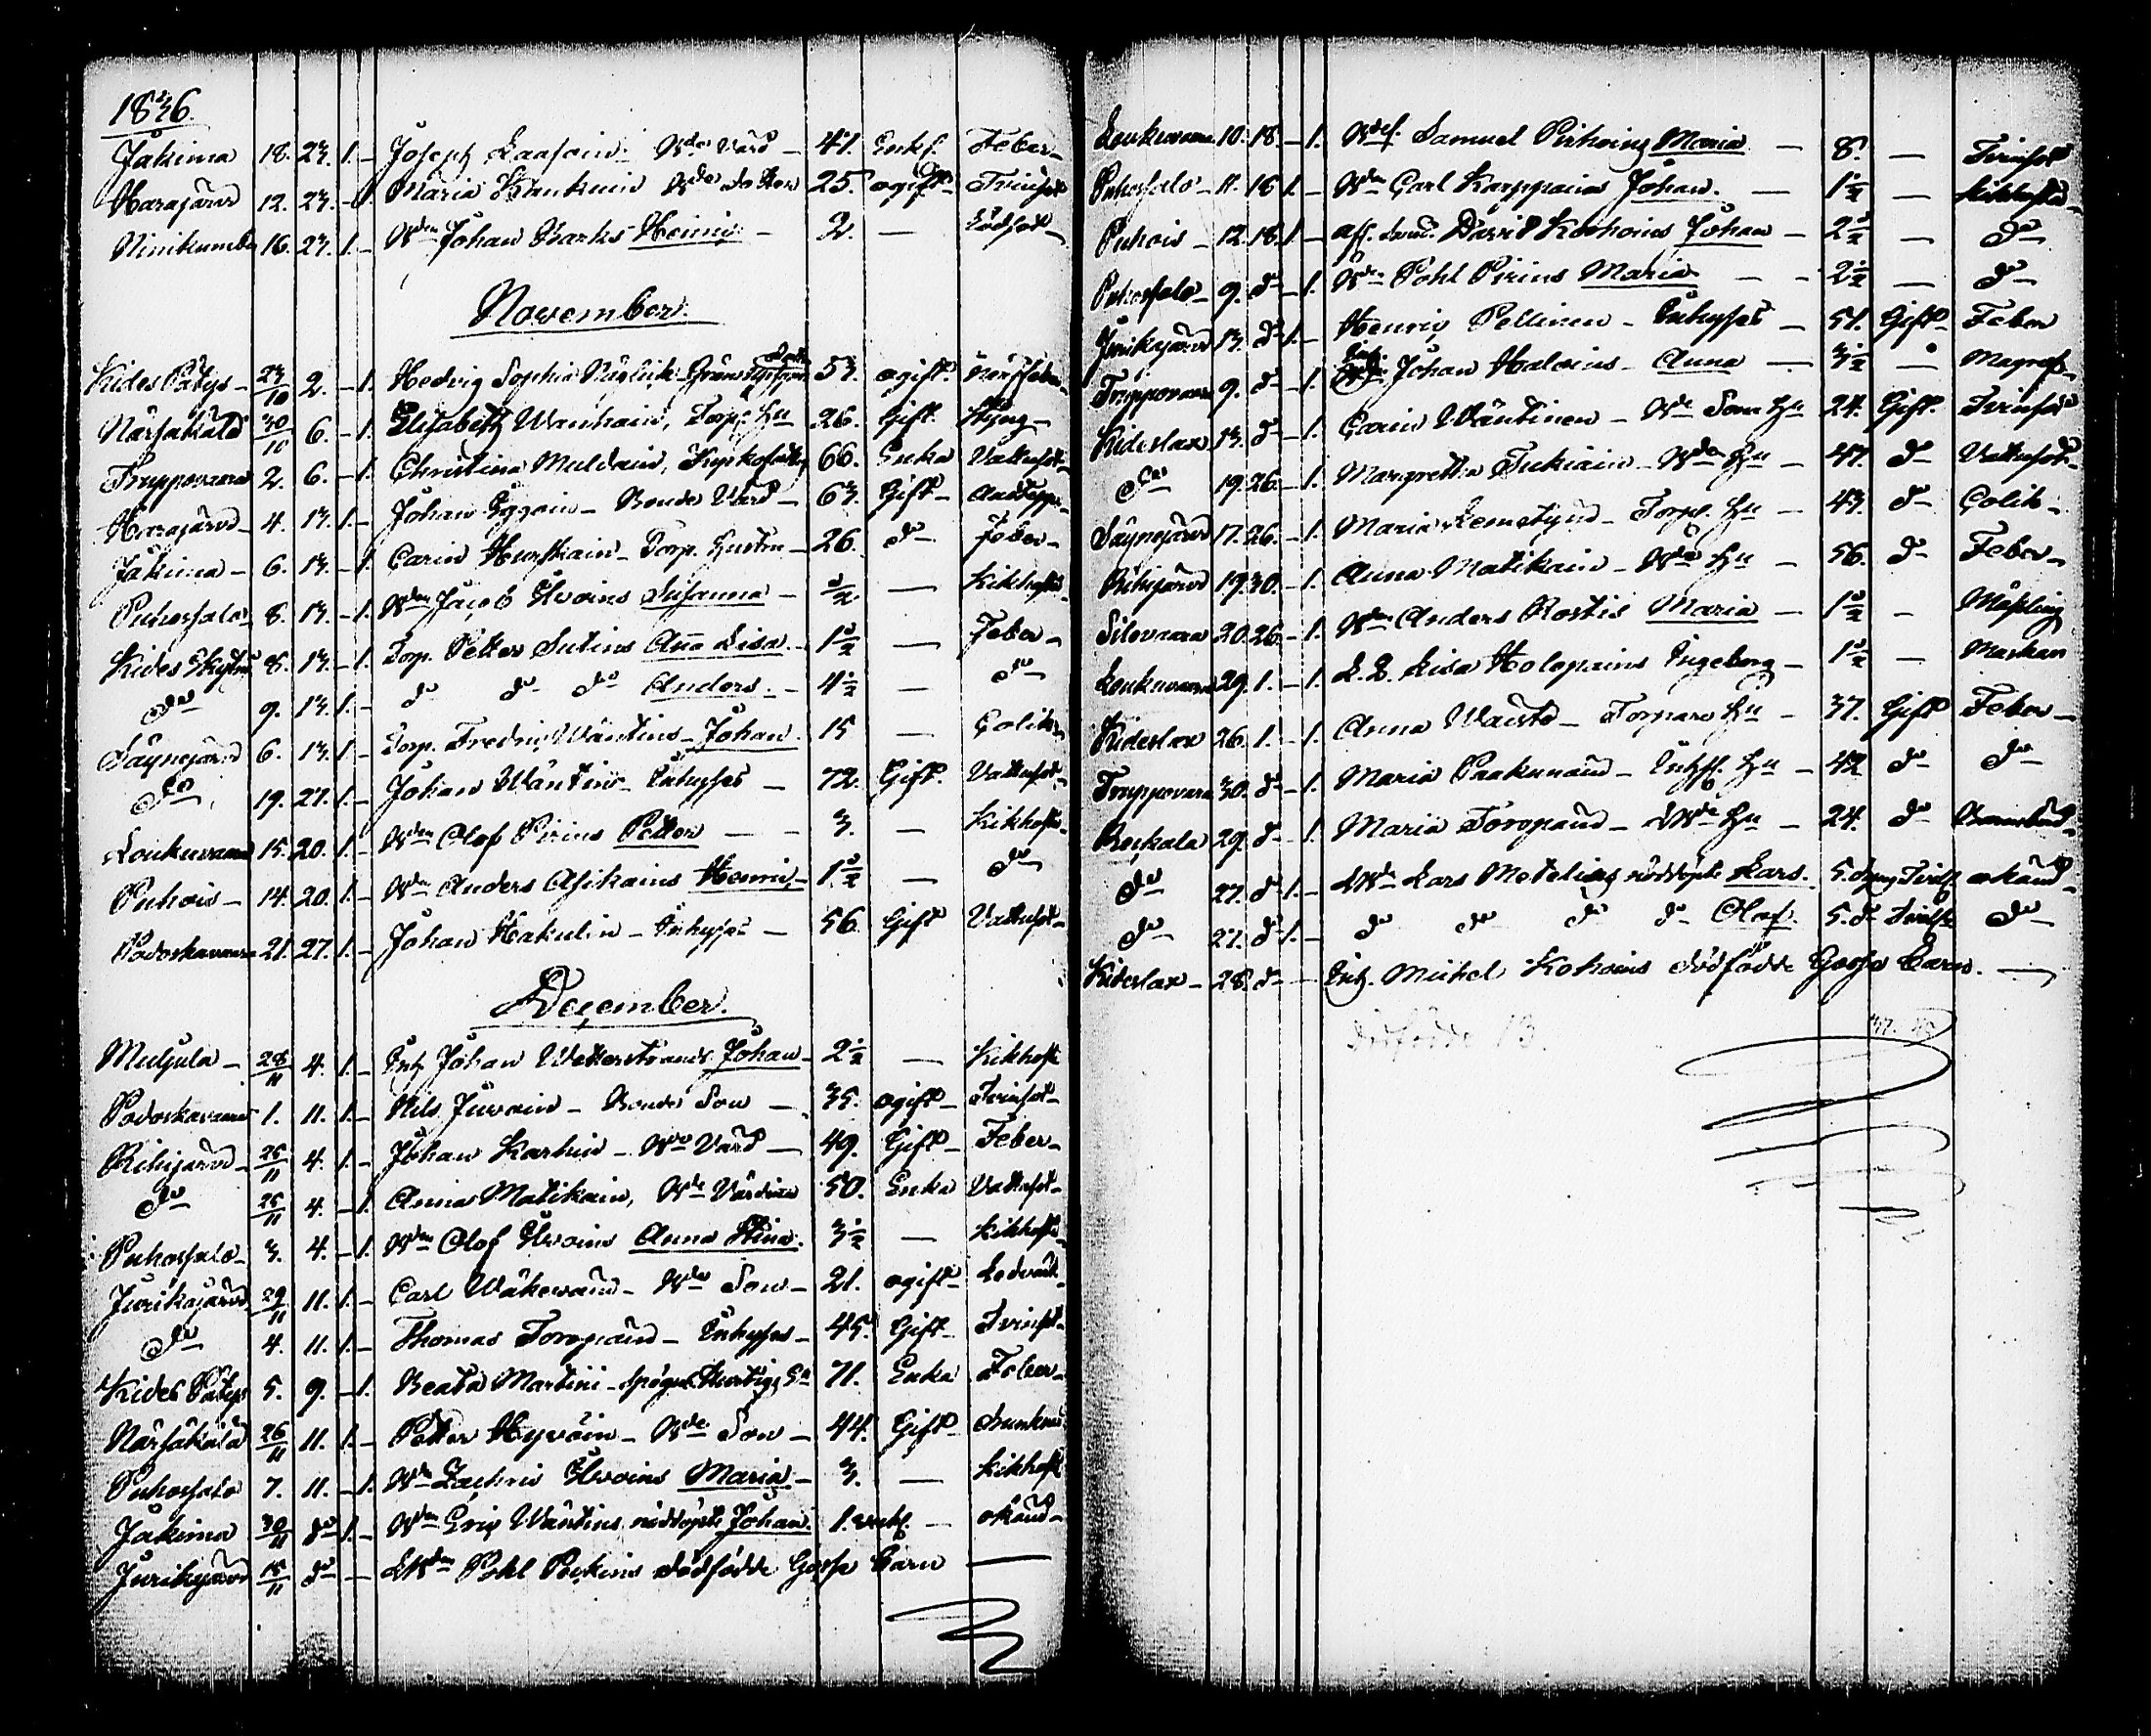 1836.
Jakima 18. 23. 1. – Joseph Laasoin Bdes Värd – 41. Enkl. Feber –
Harajärvi 12. 23. – 1. Maria Hankuin Bdes dotter 25. ogift – Tvinsot
Niinikumbu 16. 23. 1. – Bden Johan Barks Henric – 2. — Lödsot –
November.
Kides Pütys – 23/10 2. – 1. Hedvig Sophia 53. ogift. Nerffeber
Närsäkälä 30/10 6. – 1. Elisabeth Wanhain, Torp. Hu 26. Gift. Styng –
Truppovaara 2. 6. – 1. Christina Muldain, 66. Enka Vattusot –
Harajärvi – 4. 13. 1. – Johan Eggein – Bonde Värd – 63. Gift –
Jakima – 6. 13. – 1. Carin Hurskain – Torp. Hustru – 26. do – Feber –
Puhossalo 8. 13. – 1. Bden Jacob Ikoins Susanna – 1/2 — Kikhosta
Kides 8. 13. – 1. Torp. Petter Sutins Aña Lisa – 1 1/2 — Feber –
do 9. 13. 1. – do do do Anders – 4 1/2 — do –
Säynejärvi 6. 13. 1 – Torp. Fredric Wäntins – Johan 15 — Colik
do 19. 27. 1. – Johan Wäntins – Inhyses – 72. Gift. Vattusot –
Loukuvaara 15. 20. 1. – Bden Olof Pirins Petter — 3. — Kikhosta
Puhois – 14. 20. 1. – Bden Anders Asikains Henric – 1 1/2 — do
Podoskavaara 21. 27. 1. – Johan Hakulin – Inhyses – 56 Gift Vattusot –
December.
Muljula – 28/11 4. 1. – Inh. Johan Wetterstrands Johan – 2 1/2 — Kikhosta
Podoskavaara 1. 11. 1. – Nils Juvoin – Bonde Son – 35. ogift – Tvinsot –
Riihijärvi – 26/11 4. 1. – Johan Karhuin – Bde Värd — 49. Gift – Feber –
do 25/11 4. – 1. Anna Matikain, Bde Värdina 50. Enka Vattusot –
Puhossalo – 3. 4. – 1. Bden Olof Ikoins Anna Stina 3 1/2 — Kikhosta
Jurikajärvi 29/11 11. 1. – Carl Wäkewain – Bdes Son – 21. ogift –
do 4. 11. 1. – Thomas Toropain – Inhyses – 45. Gift – Tvinsot –
Kides Pütys 5. 9. – 1. Beata Martini – 71. Enka Feber –
Närsäkälä 26/11 11. 1. – Petter Hyvöin – Bde Son – 44. Gift – Drunknad
Puhossalo 7. 11. – 1. Bden Zachris Ikoins Maria – 3. — Kikhosta
Jakima 30/11 do 1. – Bden Eric Wäntins nöddöpte Johan. 1. veck. — okänd –
Jurikajärvi 15/11 do — LBden Pohl Pockins dödfödde Gosse Barn —
Loukuvaara 10. 18. – 1. Bdef. Samuel Pirhoing Maria — 8. — Tvinsot
Puhossalo – 11. 18 1. – Bden Carl Karppains Johan. — 1 1/2 — Kikhosta –
Puhois – 12. 18. 1. – afs. Sold. David Koshoins Johan – 2 1/2 — do –
Puhossalo – 9. do – 1. Bden Pohl Pirins Maria – – 2 1/2 — do –
Jurikajärvi 13. do 1. – Henric Pellinen – Inhyses – 51. Gift – Feber
Truppovaara 9. do – 1. Inh. Johan Haloins – Anna — 3 1/2 — Magref –
Kideslax 13. do – 1. Carin Wäntinen – Bde Sons Hu 24. Gift. Tvinsot
do 19. 26. – 1. Margretha Tukiain – Bden Hu – 47. do Vattusot –
Säynejärvi 17. 26. – 1. Maria – Torp. Hu – 43. do Colik –
Riihijärvi 19. 30. – 1. Anna Matikain – Bde Hu – 56. do Feber –
Silovaara 20. 26. – 1. Bden Anders Rostis Maria – 1 1/2 – Mässling
Loukuvaara 29. 1. – 1. Lisa Holopains Ingeborg – 1 1/2 — Maskar
Kideslax 26. 1. – 1. Anna Waisto – Torpare Hu – 37. Gift Feber –
Truppovaara 30. do – 1. Maria Paakunain – Inhys. Hu – 42 do do –
Beckala 29. do – 1. Maria Toropain – LBde Hu – 24. do Barnsbörd –
do 27. do 1. – LBde Lars nöddöpte Lars. 5. dygn Tvill. okänd –
do 27. do 1. – do do do do Olof. 5. do Tvill. do –
Kideslax – 28. do — Inh. Michel Kohoins dödfödde Gosse Barn. —
dödfödde 13.